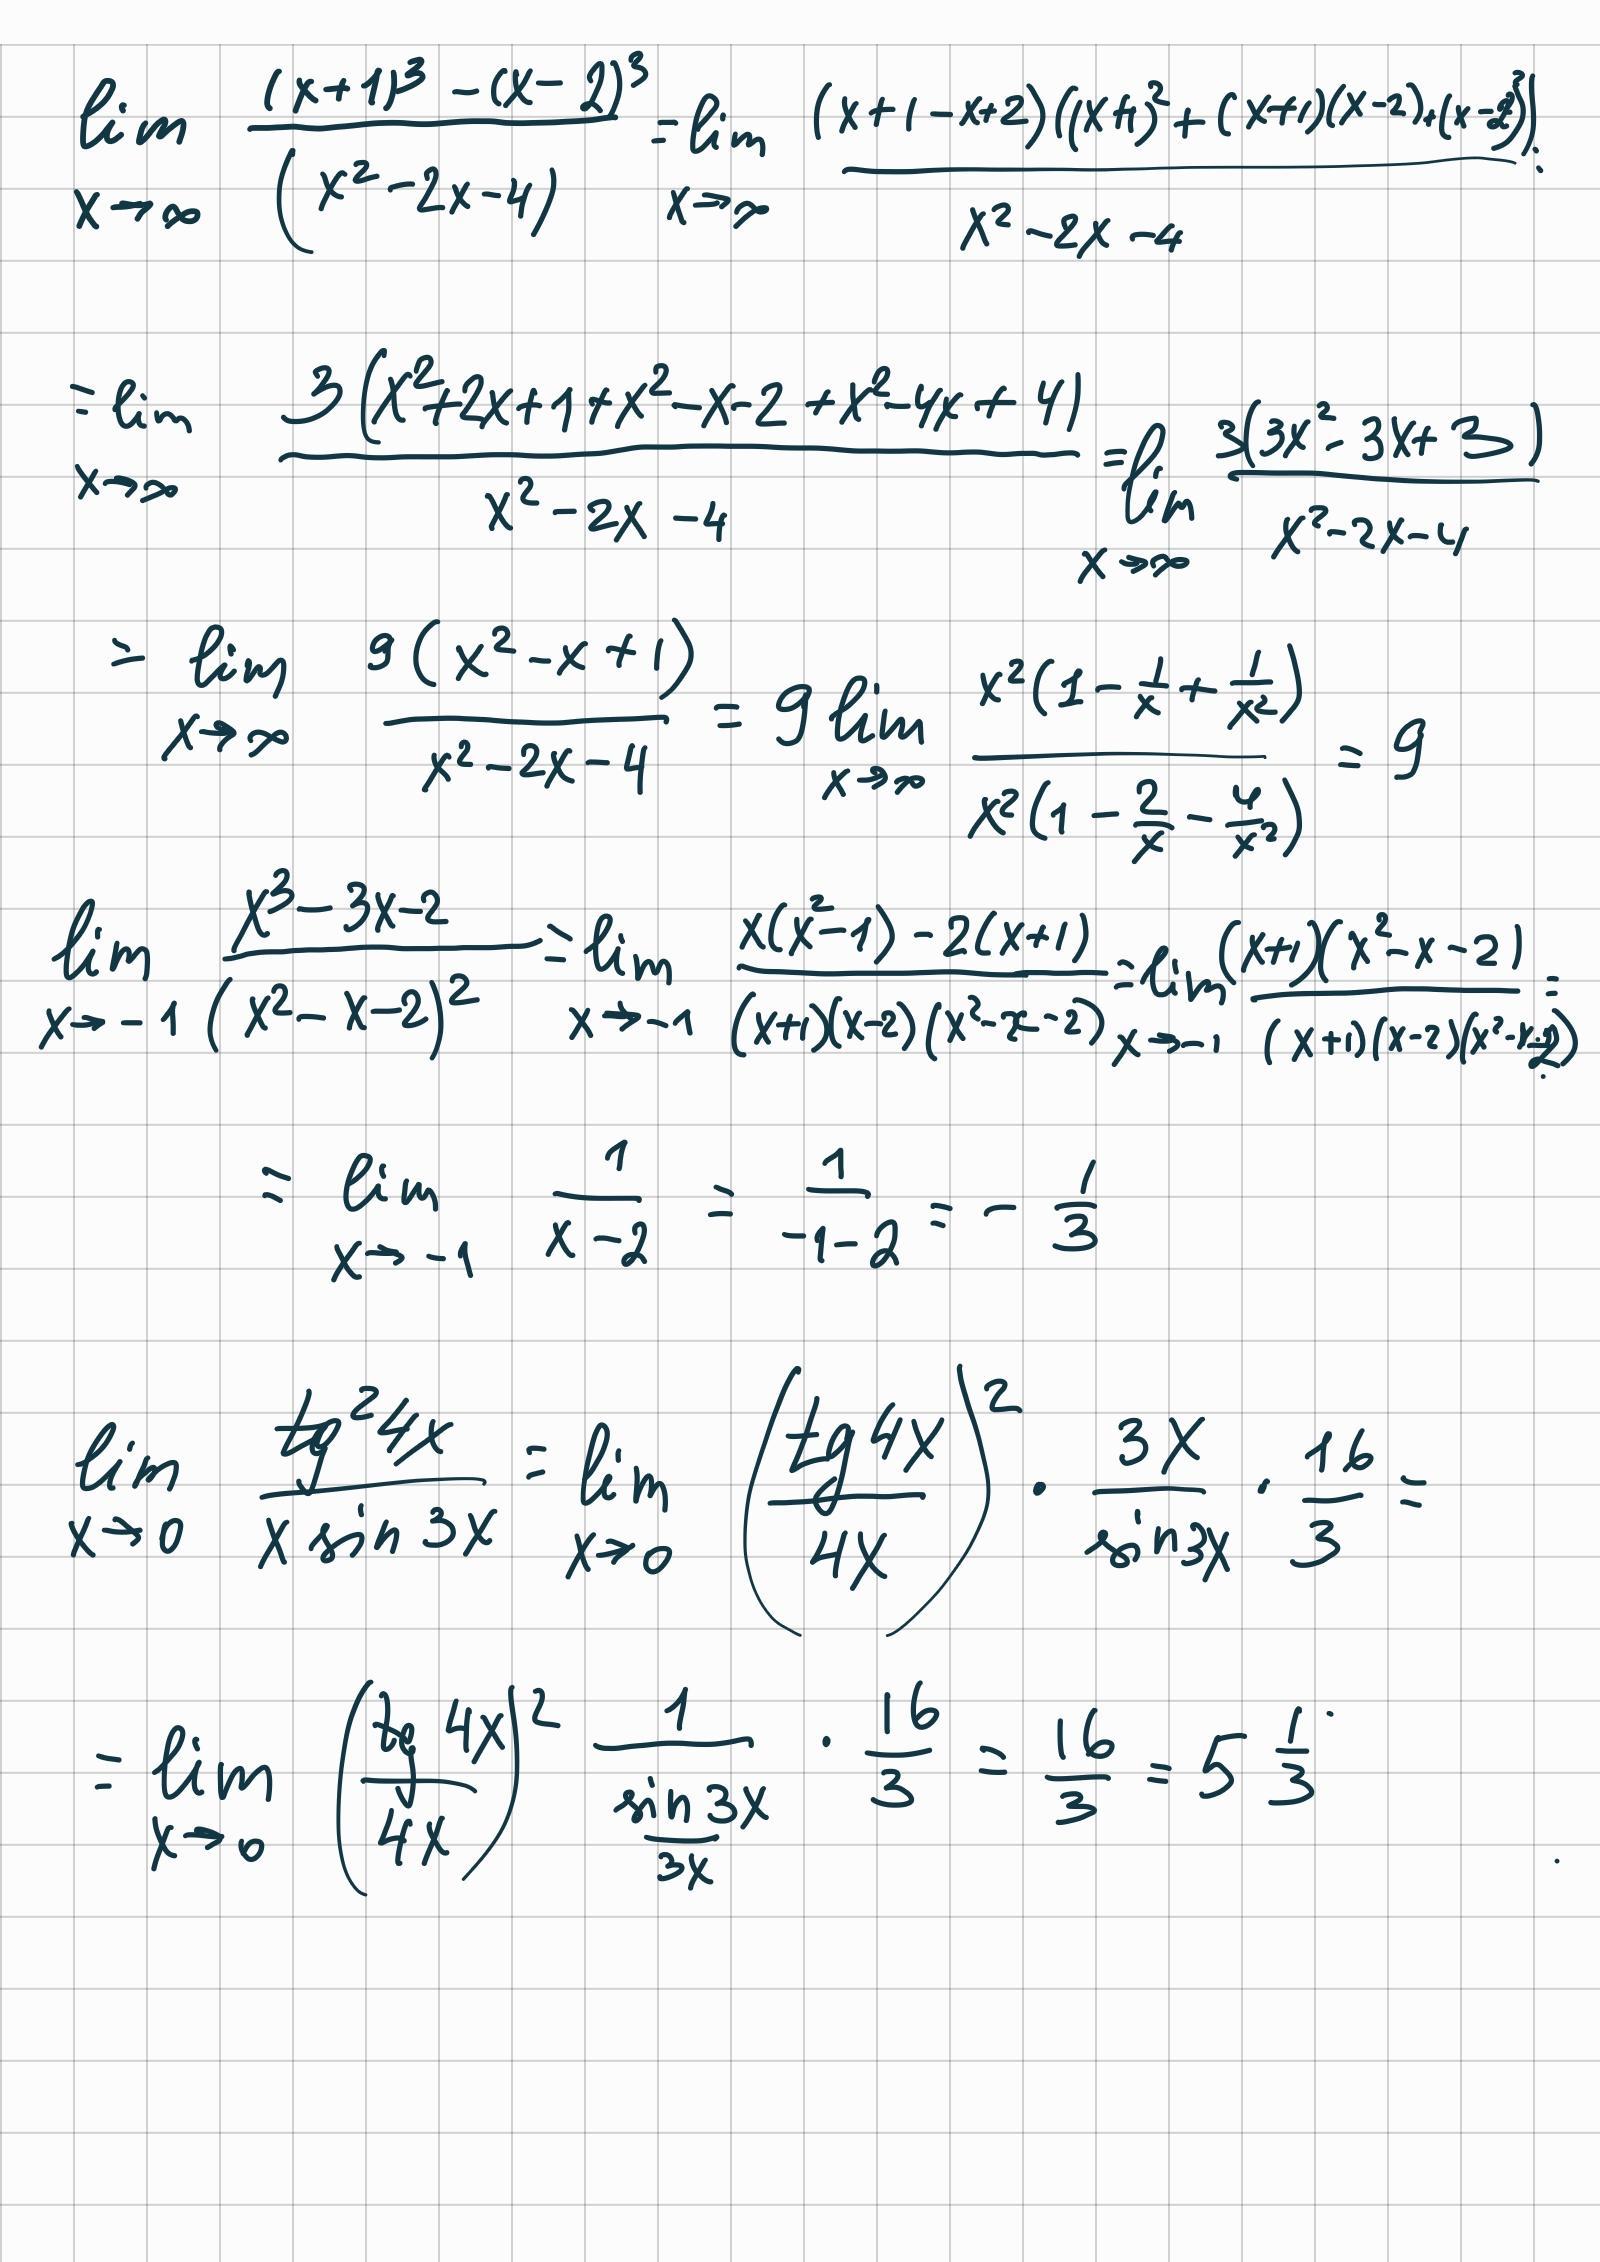 lim x→∞ ((x+1)³ − (x−2)³)/(x² − 2x − 4) = lim x→∞ ((x+1−x+2)((x+1)² + (x+1)(x−2) + (x−2)²))/(x² − 2x − 4)
= lim x→∞ 3(x² + 2x + 1 + x² − x − 2 + x² − 4x + 4)/(x² − 2x − 4) = lim x→∞ 3(3x² − 3x + 3)/(x² − 2x − 4)
= lim x→∞ 9(x² − x + 1)/(x² − 2x − 4) = 9 lim x→∞ x²(1 − 1/x + 1/x²)/x²(1 − 2/x − 4/x²) = 9
lim x→−1 (x³ − 3x − 2)/(x² − x − 2)² = lim x→−1 (x(x² − 1) − 2(x+1))/((x+1)(x−2)(x² − x − 2)) = lim x→−1 (x+1)(x² − x − 2)/((x+1)(x−2)(x² − x − 2)) =
= lim x→−1 1/(x − 2) = 1/(−1 − 2) = − 1/3
lim x→0 tg²4x/(x sin 3x) = lim x→0 (tg 4x/4x)² · 3x/sin 3x · 16/3 =
= lim x→0 (tg 4x/4x)² 1/(sin 3x/3x) · 16/3 = 16/3 = 5 1/3